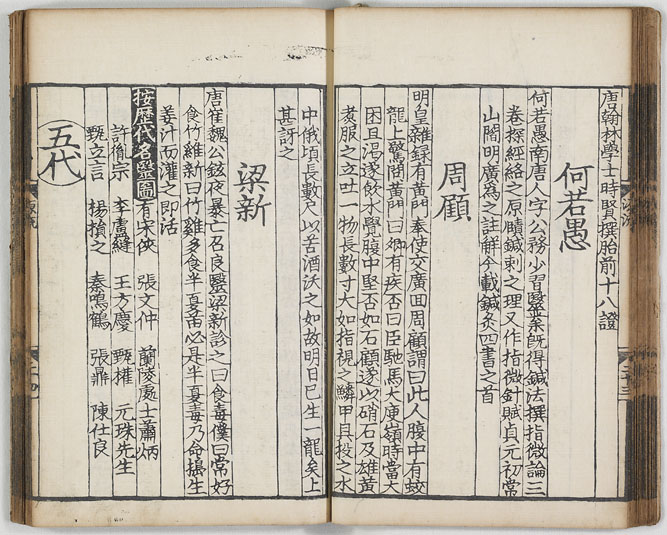 唐翰林學士時賢撰胎前十八證
何若愚
何若愚南唐人字公務少習醫業旣得鍼法撰指微論三
卷探經絡之原賾鍼刺之理又作指微針賦貞元初常
山閻明廣爲之註解今載鍼灸四書之首
周顧
明皇雜録有黄門奉使交廣回周顧謂曰此人腹中有蛟
龍上驚問黄門曰卿有疾否曰臣馳馬大庾嶺時當大
困且渴遂飲水覺腹中堅否如石顧遂以硝石及雄黄
煑服之立吐一物長數寸大如指視之鱗甲具投之水
中俄頃長數尺以苦酒沃之如故明日已生一龍矣上
甚訝之
梁新
唐崔魏公鉉夜暴亡召良醫梁新診之曰食毒僕曰常好
食竹雞新曰竹雞多食半夏苗必是半夏毒乃命搗生
姜汁而灌之即活
按歷代名醫圖有宋俠 張文仲 蘭陵處士蕭炳
許胤 李虔縱 王方慶 甄權 元珠先生
甄立言 楊損之 秦鳴鶴 張鼎 陳仕良
五代